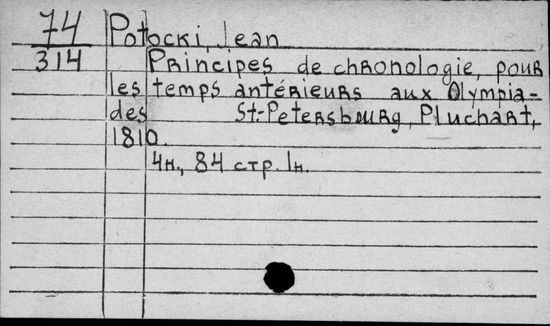 74 Potocki, Jean
314 Principes de chronologie, pour
les temps antérieurs aux Olympia-
des St.-Petersbourg, Pluchart,
1810.
4н., 84 стр. 1н.